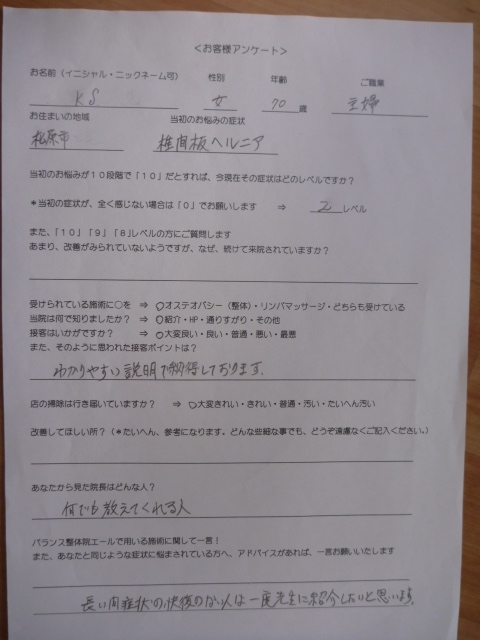 <お客様アンケート>
お名前(イニシャル・ニックネーム可) 性別 年齢 ご職業
KS 女 70 歳 主婦
お住まいの地域 当初のお悩みの症状
松原市 椎間板ヘルニア
当初のお悩みが10段階で「10」だとすれば、今現在その症状はどのレベルですか?
*当初の症状が、全く感じない場合は「0」でお願いします ⇒ 2 レベル
また、「10」「9」「8」レベルの方にご質問します
あまり、改善がみられていないようですが、なぜ、続けて来院されていますか?
受けられている施術に○を ⇒ ○オステオパシー(整体)・リンパマッサージ・どちらも受けている
当院は何で知りましたか? ⇒ ○紹介・HP・通りすがり・その他
接客はいかがですか? ⇒ ○大変良い・良い・普通・悪い・最悪
また、そのように思われた接客ポイントは?
わかりやすい説明で納得しております。
店の掃除は行き届いていますか? ⇒ ○大変きれい・きれい・普通・汚い・たいへん汚い
改善してほしい所?(*たいへん、参考になります。どんな些細な事でも、どうぞ遠慮なくご記入ください。)
あなたから見た院長はどんな人?
何でも教えてくれる人
バランス整体院エールで用いる施術に関して一言!
また、あなたと同じような症状に悩まされている方へ、アドバイスがあれば、一言お願いいたします
長い間症状の快復のない人は一度先生に紹介したいと思います。